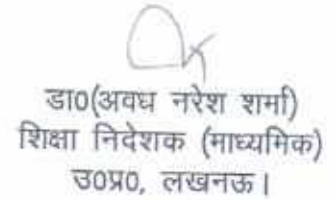 डा0(अवध नरेश शर्मा)
शिक्षा निदेशक (माध्यमिक)
उ0प्र0, लखनऊ।